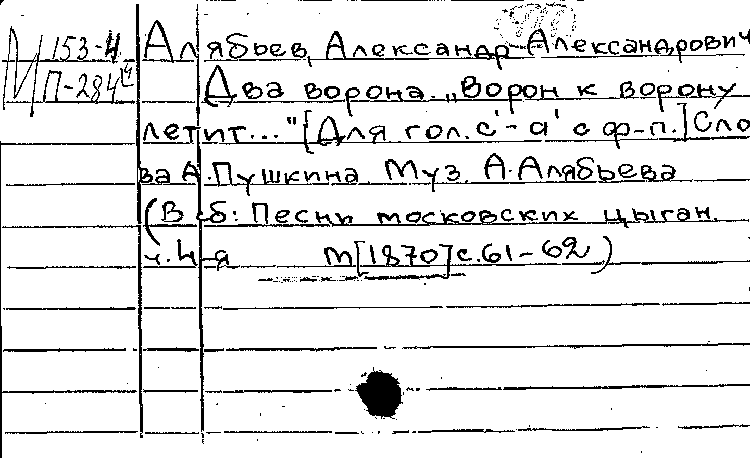 М 153-4
П-284
Алябьев, Александр Александрович
Два ворона „Ворон к ворону
летит..." [Для гол. c'-a' с ф-п.] Сло
ва А. Пушкина. Муз. А. Алябьева
(В сб: Песни московских цыган.
ч. 4-я м [1870] с. 61-62)